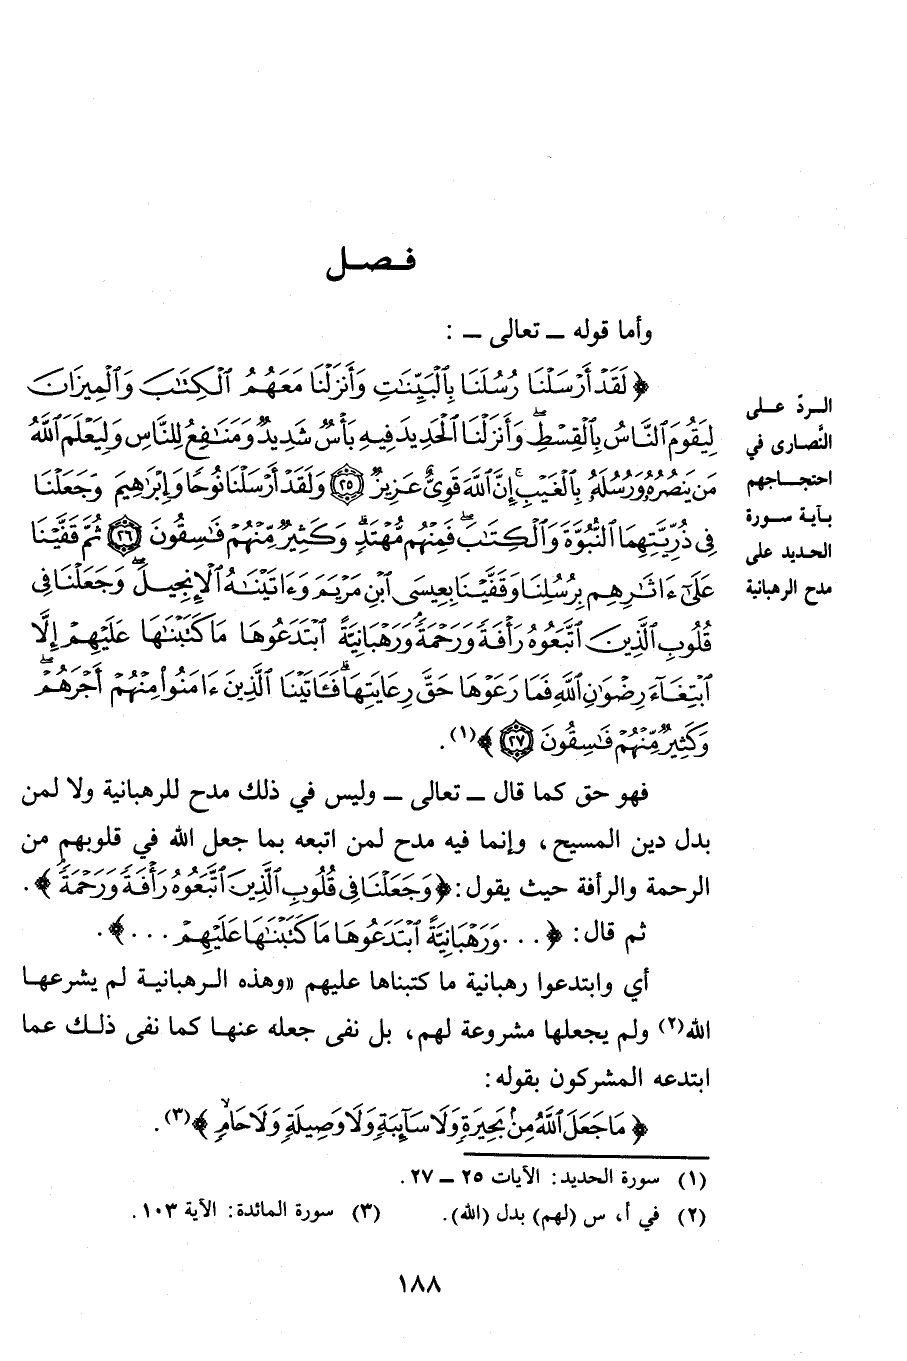 فـصـل
وأما قوله ــ تعالى ــ :
﴿ لَقَدْ أَرْسَلْنَا رُسُلَنَا بِالْبَيِّنَٰتِ وَأَنزَلْنَا مَعَهُمُ الْكِتَٰبَ وَالْمِيزَانَ
لِيَقُومَ النَّاسُ بِالْقِسْطِ ۖ وَأَنزَلْنَا الْحَدِيدَ فِيهِ بَأْسٌ شَدِيدٌ وَمَنَٰفِعُ لِلنَّاسِ وَلِيَعْلَمَ اللَّهُ
مَن يَنصُرُهُۥ وَرُسُلَهُۥ بِالْغَيْبِ ۚ إِنَّ اللَّهَ قَوِيٌّ عَزِيزٌ ٢٥ وَلَقَدْ أَرْسَلْنَا نُوحًا وَإِبْرَٰهِيمَ وَجَعَلْنَا
فِي ذُرِّيَّتِهِمَا النُّبُوَّةَ وَالْكِتَٰبَ ۖ فَمِنْهُم مُّهْتَدٍ ۖ وَكَثِيرٌ مِّنْهُمْ فَٰسِقُونَ ٢٦ ثُمَّ قَفَّيْنَا
عَلَىٰٓ ءَاثَٰرِهِم بِرُسُلِنَا وَقَفَّيْنَا بِعِيسَى ابْنِ مَرْيَمَ وَءَاتَيْنَٰهُ الْإِنجِيلَ ۖ وَجَعَلْنَا فِي
قُلُوبِ الَّذِينَ اتَّبَعُوهُ رَأْفَةً وَرَحْمَةً وَرَهْبَانِيَّةً ابْتَدَعُوهَا مَا كَتَبْنَٰهَا عَلَيْهِمْ إِلَّا
ابْتِغَآءَ رِضْوَٰنِ اللَّهِ فَمَا رَعَوْهَا حَقَّ رِعَايَتِهَا ۖ فَـَٔاتَيْنَا الَّذِينَ ءَامَنُوا۟ مِنْهُمْ أَجْرَهُمْ ۖ
وَكَثِيرٌ مِّنْهُمْ فَٰسِقُونَ ٢٧ ﴾(١) .
الـردّ عـلى
النَّصارى في
احتجـاجهم
بـآيـة سـورة
الحـديد على
مدح الرهبانية
فهو حق كما قال ــ تعالى ــ وليس في ذلك مدح للرهبانية ولا لمن
بدل دين المسيح، وإنما فيه مدح لمن اتبعه بما جعل الله في قلوبهم من
الرحمة والرأفة حيث يقول: ﴿ وَجَعَلْنَا فِي قُلُوبِ الَّذِينَ اتَّبَعُوهُ رَأْفَةً وَرَحْمَةً ﴾ .
ثم قال: ﴿ . . . وَرَهْبَانِيَّةً ابْتَدَعُوهَا مَا كَتَبْنَٰهَا عَلَيْهِمْ . . . ﴾ .
أي وابتدعوا رهبانية ما كتبناها عليهم «وهذه الـرهبانيـة لم يشرعهـا
الله(٢) ولم يجعلها مشروعة لهم، بل نفى جعله عنهـا كما نفى ذلـك عما
ابتدعه المشركون بقوله:
﴿ مَا جَعَلَ اللَّهُ مِنۢ بَحِيرَةٍ وَلَا سَآئِبَةٍ وَلَا وَصِيلَةٍ وَلَا حَامٍ ۙ ﴾(٣) .
(١) سورة الحديد: الآيات ٢٥ ــ ٢٧ .
(٢) في أ، س (لهم) بدل (الله). (٣) سورة المائدة: الآية ١٠٣ .
١٨٨